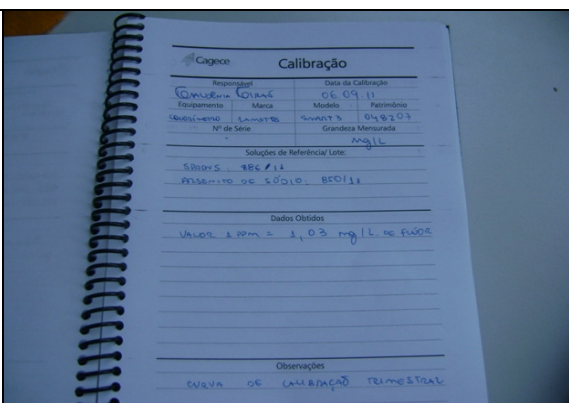 Cagece Calibração
Responsável Data da Calibração
06.09.11
Equipamento Marca Modelo Patrimônio
LAMOTTE SMART 3 048207
Nº de Série Grandeza Mensurada
mg/L
Soluções de Referência/ Lote:
SPADNS: 886/11
ARSENITO DE SÓDIO: 850/11
Dados Obtidos
VALOR 1 PPM = 1,03 mg/L DE FLÚOR
Observações
CURVA DE CALIBRAÇÃO TRIMESTRAL